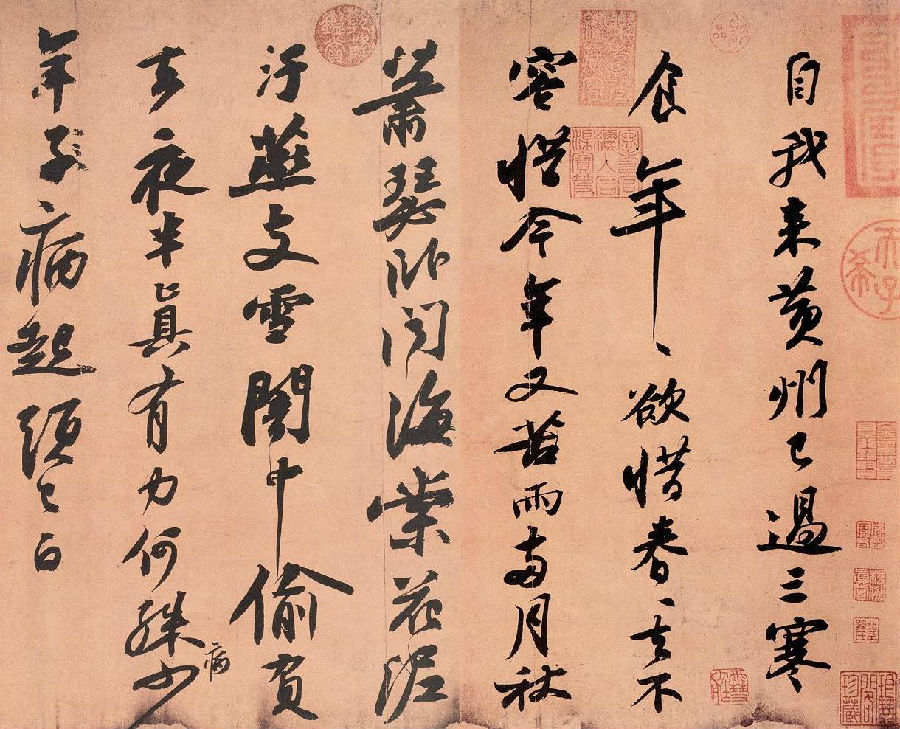 自我来黄州已過三寒
食年〻欲惜春〻去不
容惜今年又苦雨兩月秋
蕭瑟卧聞海棠花泥
汙燕支雪闇中偷負
去夜半真有力何殊病少
年子病起頭已白